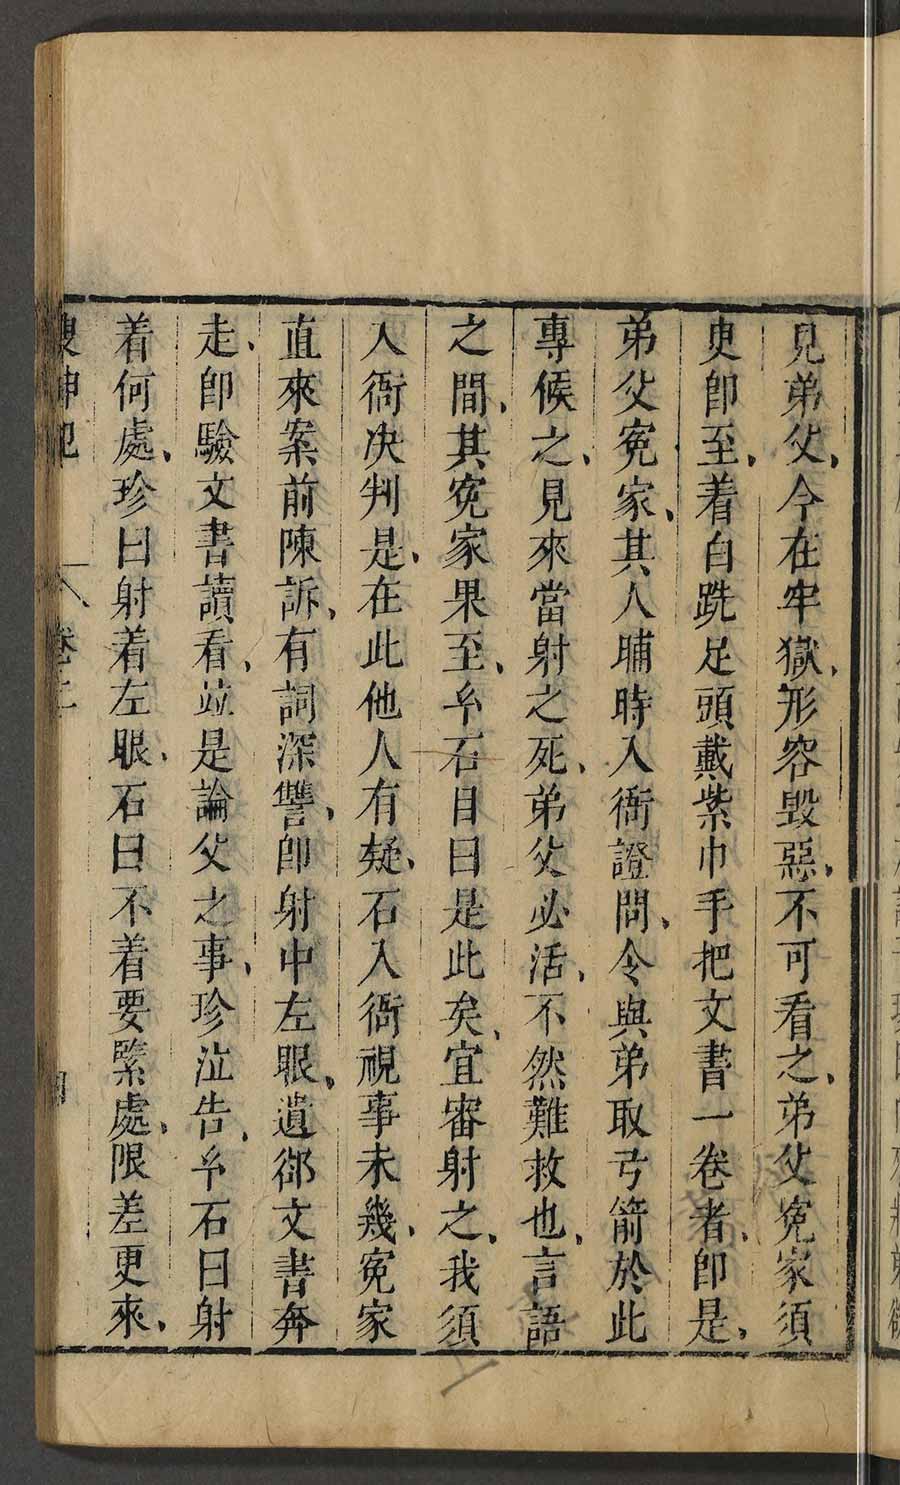 見弟父、今在牢獄、形容毀惡、不可看之、弟父冤家須
臾即至、着白跣足頭戴紫巾手把文書一卷者、即是、
弟父冤家、其人晡時入衙證問、令與弟取弓箭於此
專候之、見來當射之死、弟父必活、不然難救也、言語
之間、其冤家果至、元石目曰是此矣、宜審射之、我須
入衙決判是、在此他人有疑、石入衙視事未幾、冤家
直來案前陳訴、有詞深讐、即射中左眼、遺却文書奔
走、即驗文書讀看、竝是論父之事、珍泣告、元石曰射
着何處、珍曰射着左眼、石曰不着要緊處、限差更來、
搜神記 卷二 四